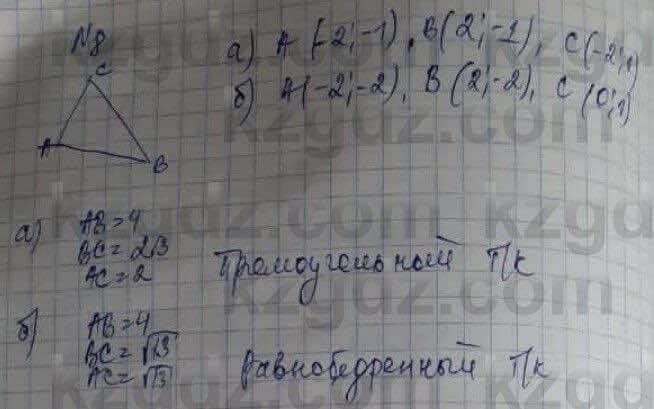 N8
а) A (-2;-1), B(2;-1), C(-2;1)
б) A(-2;-2), B(2;-2), C(0;1)
C
A
B
а) AB=4
BC=2√3
AC=2
Прямоугольный п/к
б) AB=4
BC=√13
AC=√13
Равнобедренный п/к
kzgdz.com